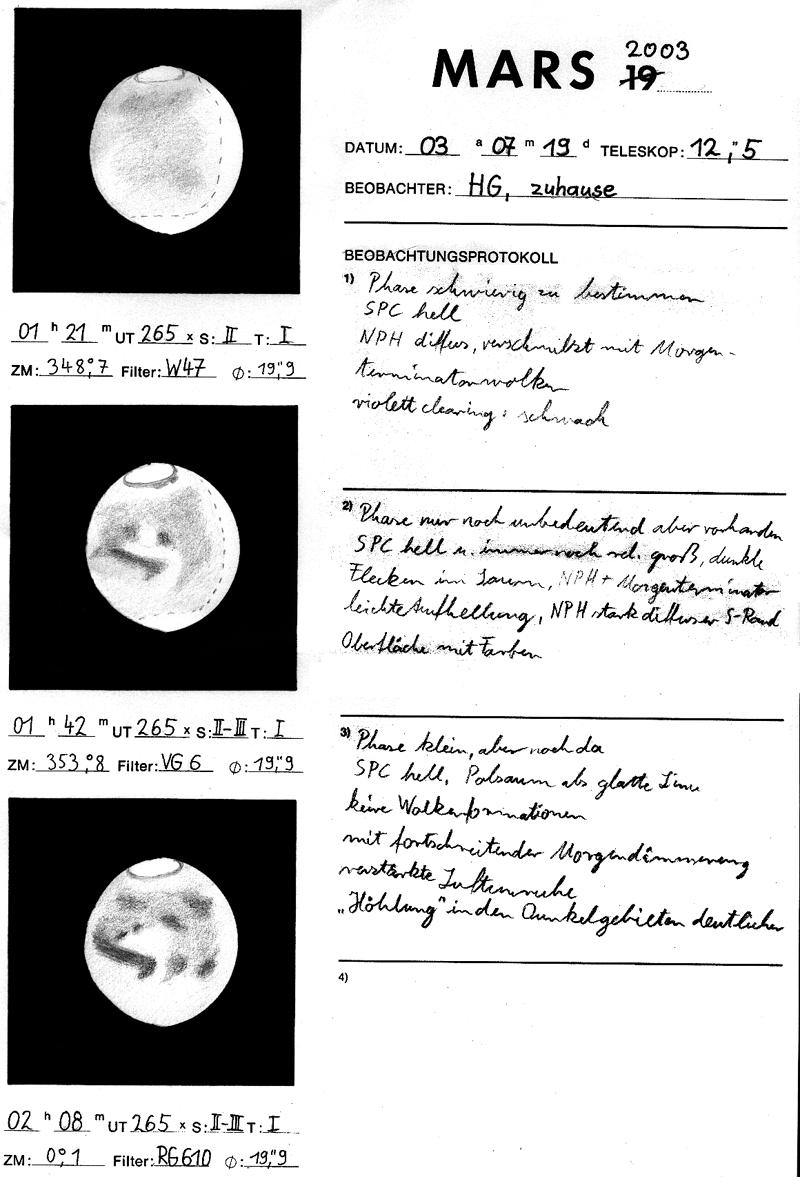 2003
MARS 19
DATUM: 03 a 07 m 19 d TELESKOP: 12,"5
BEOBACHTER: HG, zuhause
BEOBACHTUNGSPROTOKOLL
1) Phase schwierig zu bestimmen
SPC hell
NPH diffus, verschmilzt mit Morgen-
terminatorwolken
violett clearing: schwach
01 h 21 m UT 265 x S: II T: I
ZM: 348,°7 Filter: W47 ∅: 19,"9
2) Phase nur noch unbedeutend aber vorhanden
SPC hell u. immer noch rel. groß, dunkle
Flecken im Saum, NPH + Morgenterminator
leichte Aufhellung, NPH stark diffuser S-Rand
Oberfläche mit Farben
01 h 42 m UT 265 x S: II-III T: I
ZM: 353,°8 Filter: VG 6 ∅: 19,"9
3) Phase klein, aber noch da
SPC hell, Polsaum als glatte Linie
keine Wolkenformationen
mit fortschreitender Morgendämmerung
verstärkte Luftunruhe
„Höhlung" in den Dunkelgebieten deutlicher
02 h 08 m UT 265 x S: II-III T: I
ZM: 0,°1 Filter: RG610 ∅: 19,"9
4)